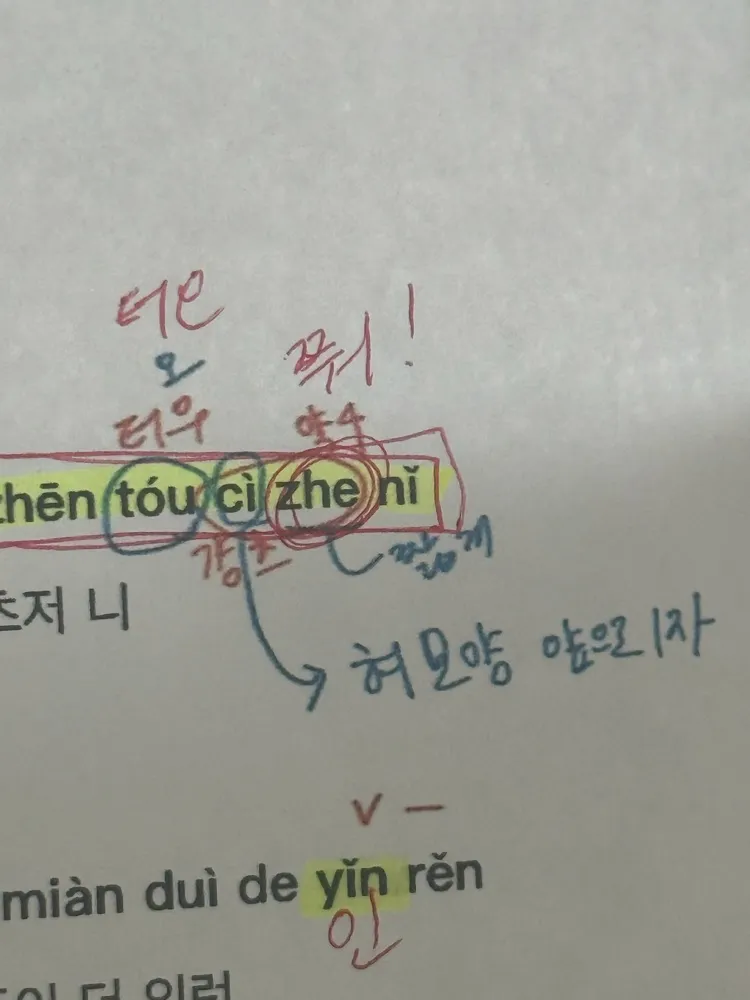 터오
오
쭤!
터우
약수
zhēn tóu cì zhe nǐ
강츠
짧게
츠저 니
혀모양 앞으로 l자
v –
miàn duì de yǐn rěn
인